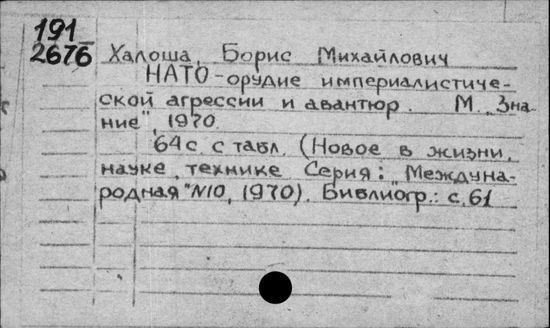 191
2676
Халоша, Борис Михайлович
НАТО - орудие империалистиче-
ской агрессии и авантюр. М. "Зна-
ние", 1970.
64 с. с табл. (Новое в жизни,
науке, технике Серия: "Междуна-
родная" №10, 1970). Библиогр.: с. 61